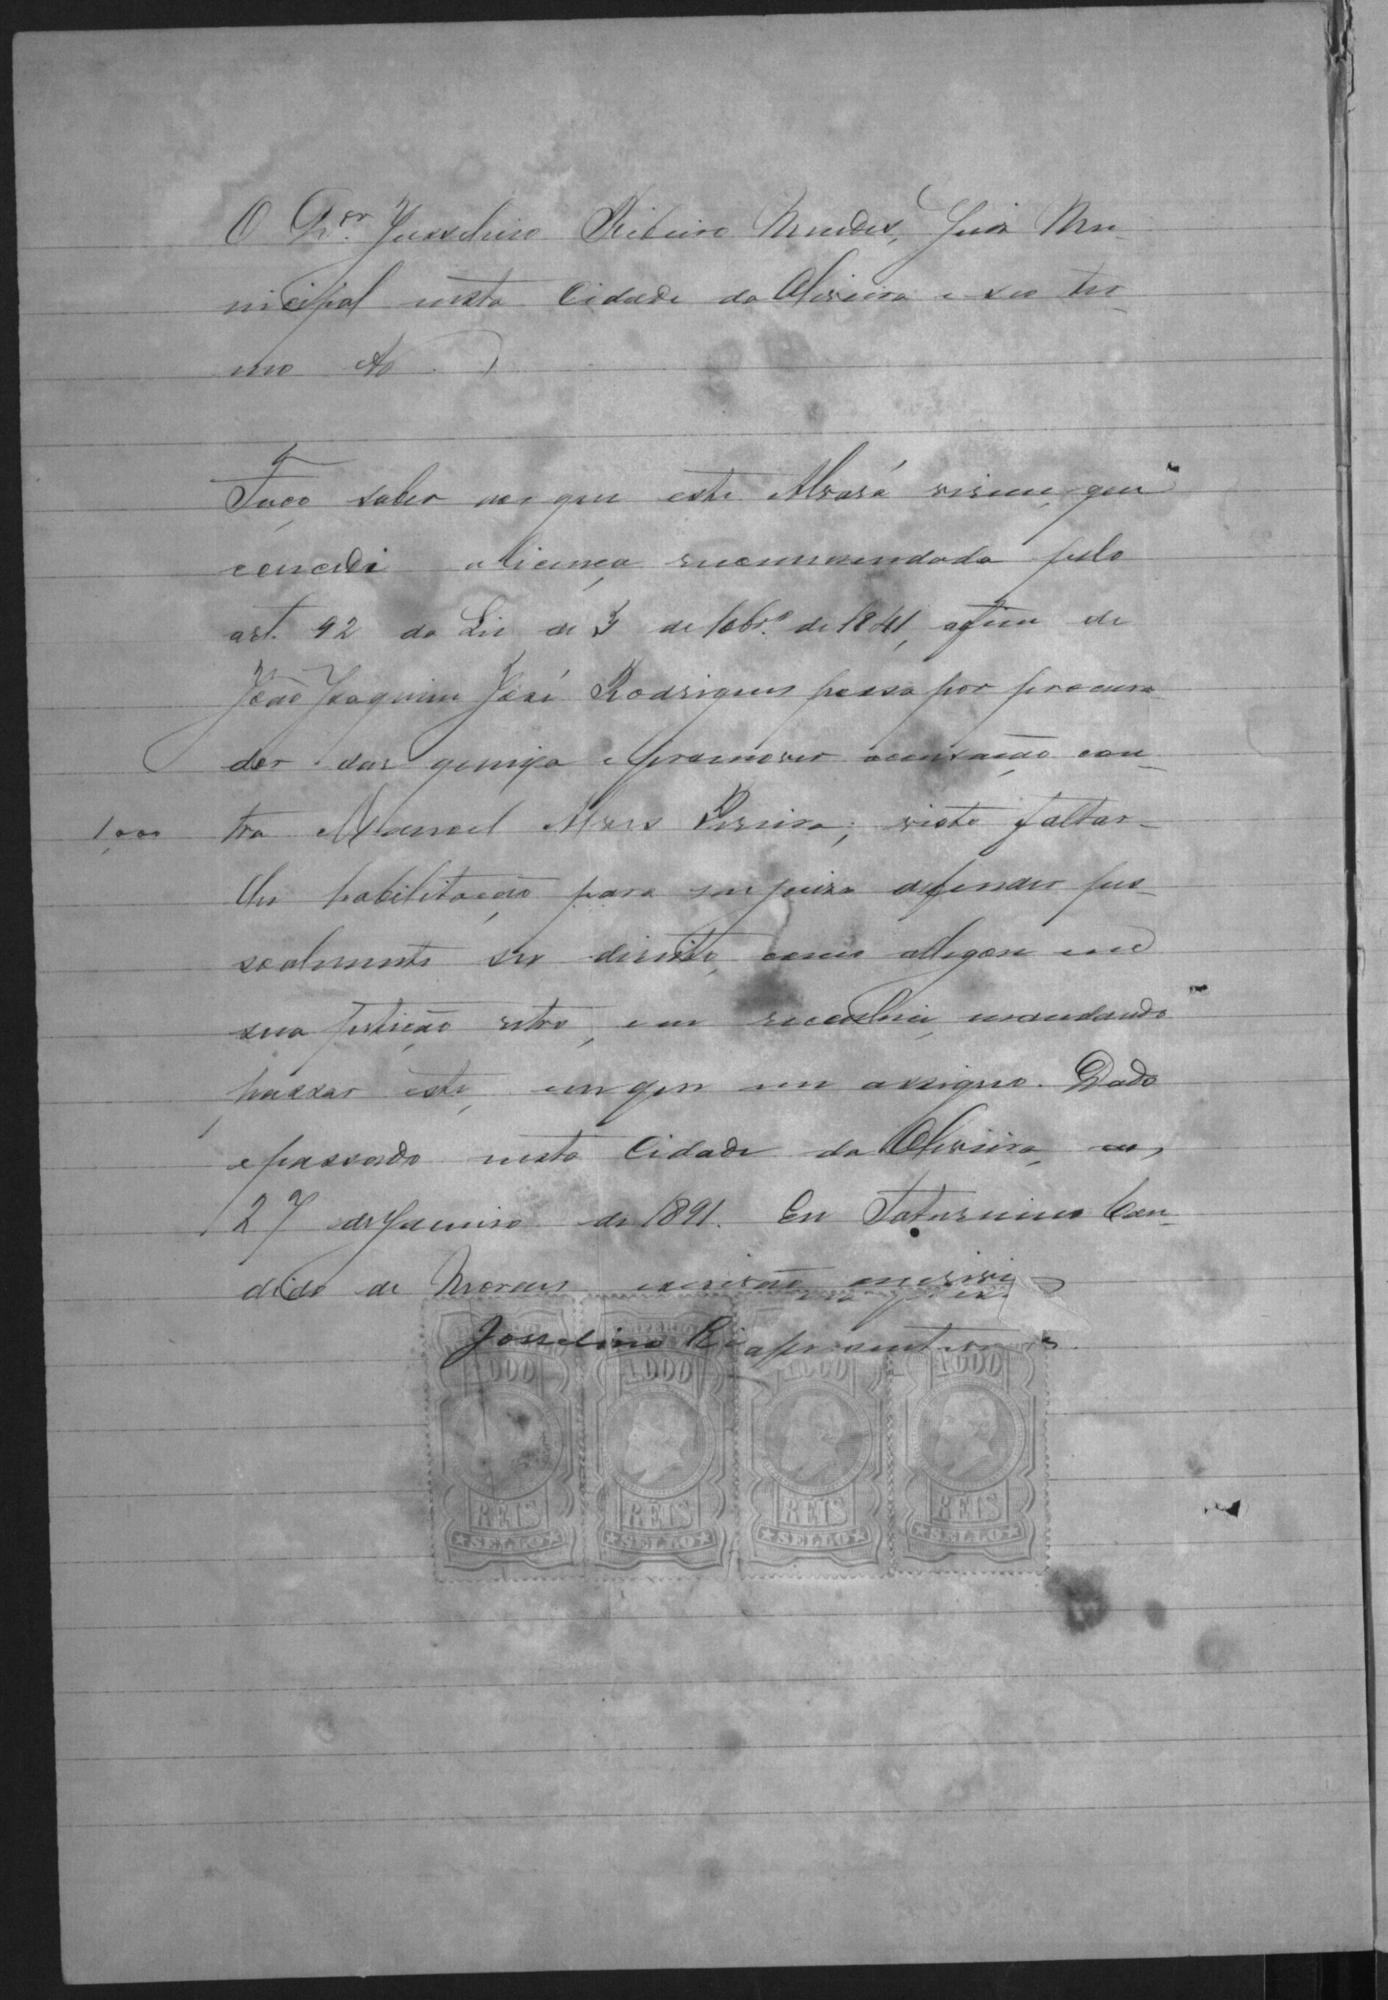 O Dr. Jusselino Ribeiro Mendes, Juiz Mu-
nicipal nesta Cidade da Oliveira e seu ter-
mo &
Faço saber aos que este Alvará virem, que
concedi a licença recommendada pelo
art. 92 da Lei de 3 de 10br.º de 1841, afim de
João Joaquim José Rodrigues possa por procura-
dor dar queixa e promover accusação con-
1,000 tra Manoel Alves Pereira; visto faltar-
lhe habilitação para em juizo defender pes-
soalmente seu direito, como allegou em
sua petição retro, e eu mandando
passar este, em que me assigno. Dado
e passado nesta Cidade da Oliveira, aos
27 de Janeiro de 1891. Eu Saturnino Can-
dido de Moraes escrivão
Josselino
1000 1000 1000 1000
REIS REIS REIS REIS
SELLO SELLO SELLO SELLO